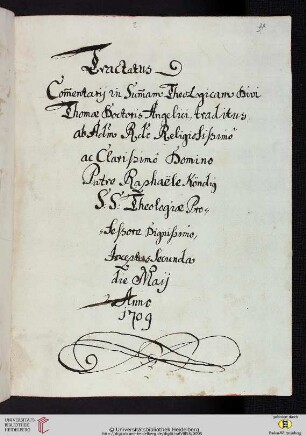 Tractatus
Com̃entarij in Sum̃am Theologicam Divi
Thomæ Doctoris Angelici, traditus
ab Adm̃ Rdo Religiosissimo
ac Clarissimo Domino
Patre Raphaële Köndig
S.S. Theologiæ Pro-
-fessore Dignissimo,
Inceptus Secunda
die Maij
Anno
1709
UNIVERSITÄTS-
BIBLIOTHEK
HEIDELBERG
© Universitätsbibliothek Heidelberg